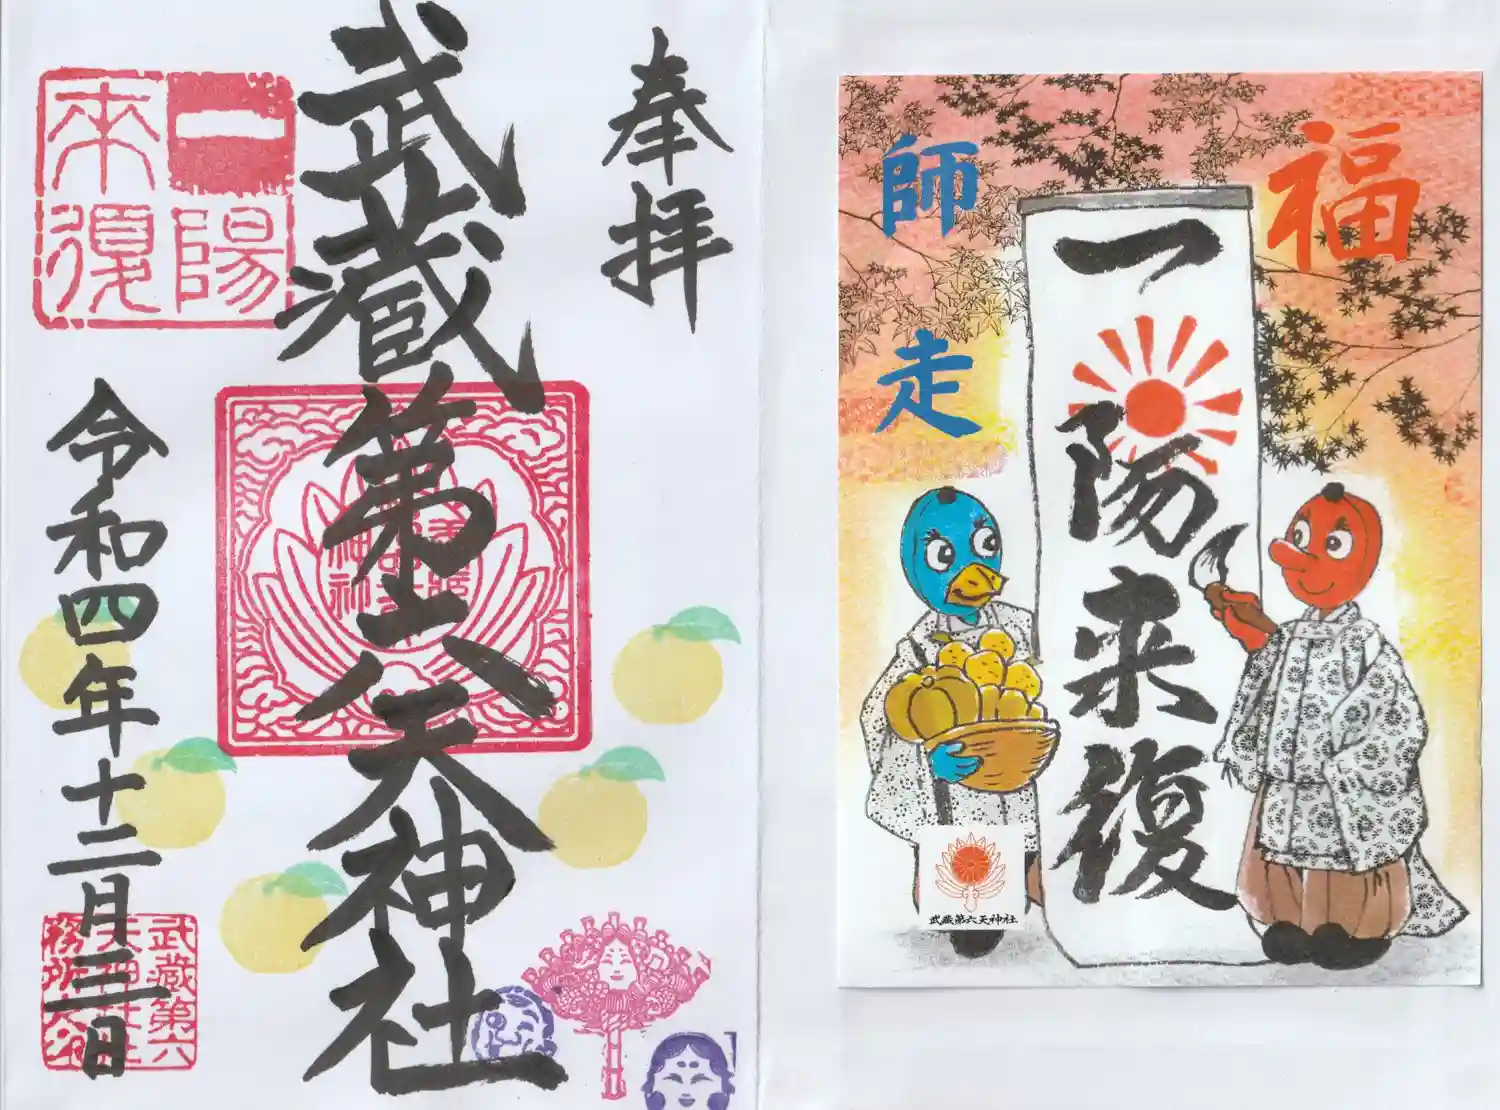 奉拝
武蔵第六天神社
一陽
来復
令和四年十二月三日
武蔵第六
天神社社
務所之印
福
師走
一陽来復
武蔵第六天神社